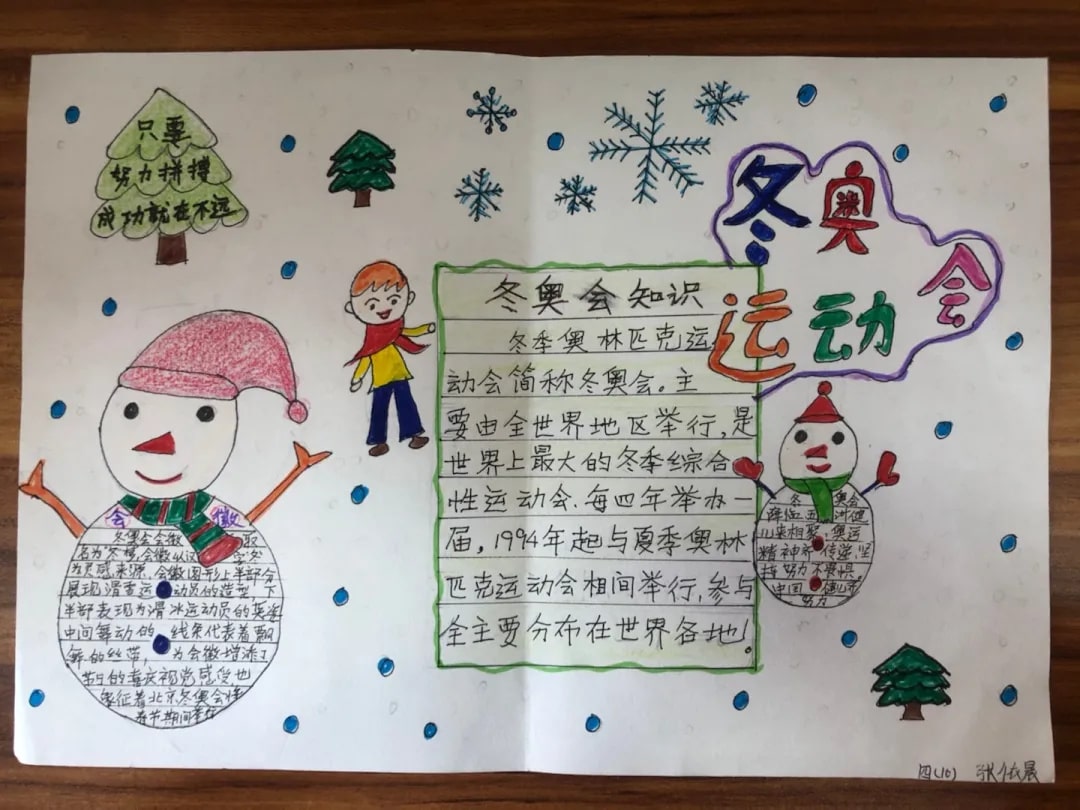 只要
努力拼搏
成功就在不远
冬奥会
运动
冬奥会知识
冬季奥林匹克运
动会简称冬奥会。主
要由全世界地区举行,是
世界上最大的冬季综合
性运动会.每四年举办一
届,1994年起与夏季奥林
匹克运动会相间举行,参与
全主要分布在世界各地!
会徽
冬奥会会徽 取
名为冬梦,会徽以汉字冬
为灵感来源,会徽图形上半部分
展现滑雪运动员的造型 下
半部表现为滑冰运动员的英姿
中间舞动的 线条代表着飘
舞的丝带, 为会徽增添了
节日的喜庆视觉感受也
象征着北京冬奥会在
春节期间举行
冬 奥会
健
儿来相聚.奥运
精神齐传递.坚
持努力不畏惧
中国
努力
四(10)